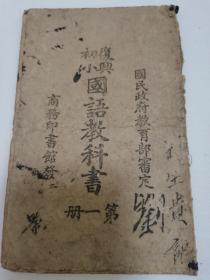 國民政府教育部審定
復興
初小
國語教科書
第一冊
商務印書館發
劉